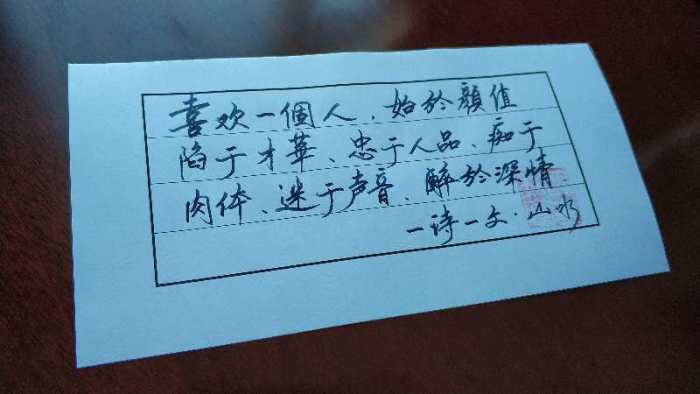 喜欢一個人、始於顔值
陷于才華、忠于人品、痴于
肉体、迷于声音、醉於深情.
一诗一文·山水